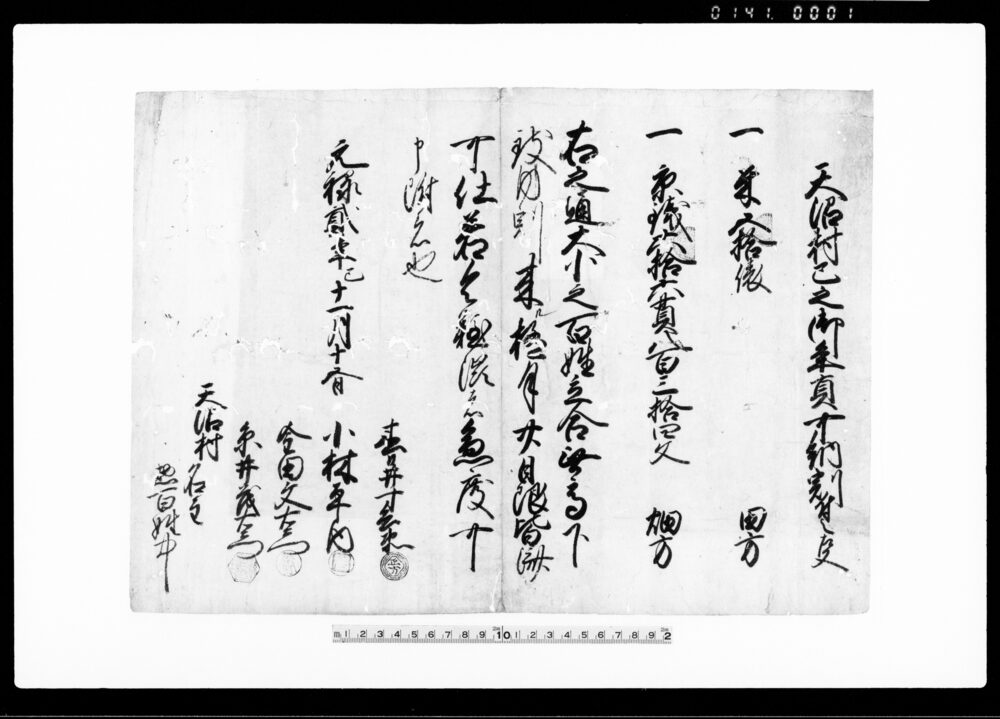 0141.0001
天沼村巳之御年貢可納割付之支
一 米 五拾俵 田方
一 京銭六拾六貫八百三拾四文 畑方
右之通大小之百姓立合無高下
致内割来極月廿日限皆済
可仕若令難渋之急度可
申付者也
元禄貳年巳十一月十一日
小林平内
金田文左衛
糸井茂左衛
天沼村 名主
惣百姓中
m 1 2 3 4 5 6 7 8 9 10 1 2 3 4 5 6 7 8 9 2